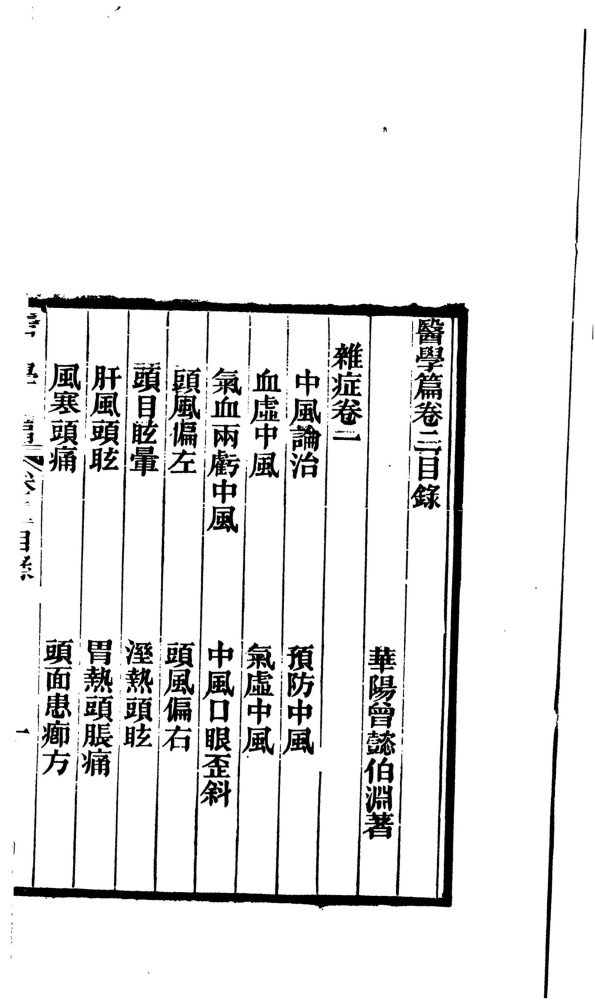 醫學篇卷二目錄
華陽曾懿伯淵著
雜症卷二
中風論治　預防中風
血虛中風　氣虛中風
氣血兩虧中風　中風口眼歪斜
頭風偏左　頭風偏右
頭目眩暈　溼熱頭眩
肝風頭眩　胃熱頭脹痛
風寒頭痛　頭面患癤方
學篇 卷二目錄　一